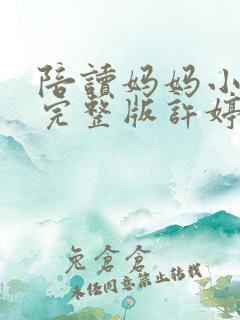 陪讀妈妈小
完整版許婷
兔倉倉
未经同意禁止转载